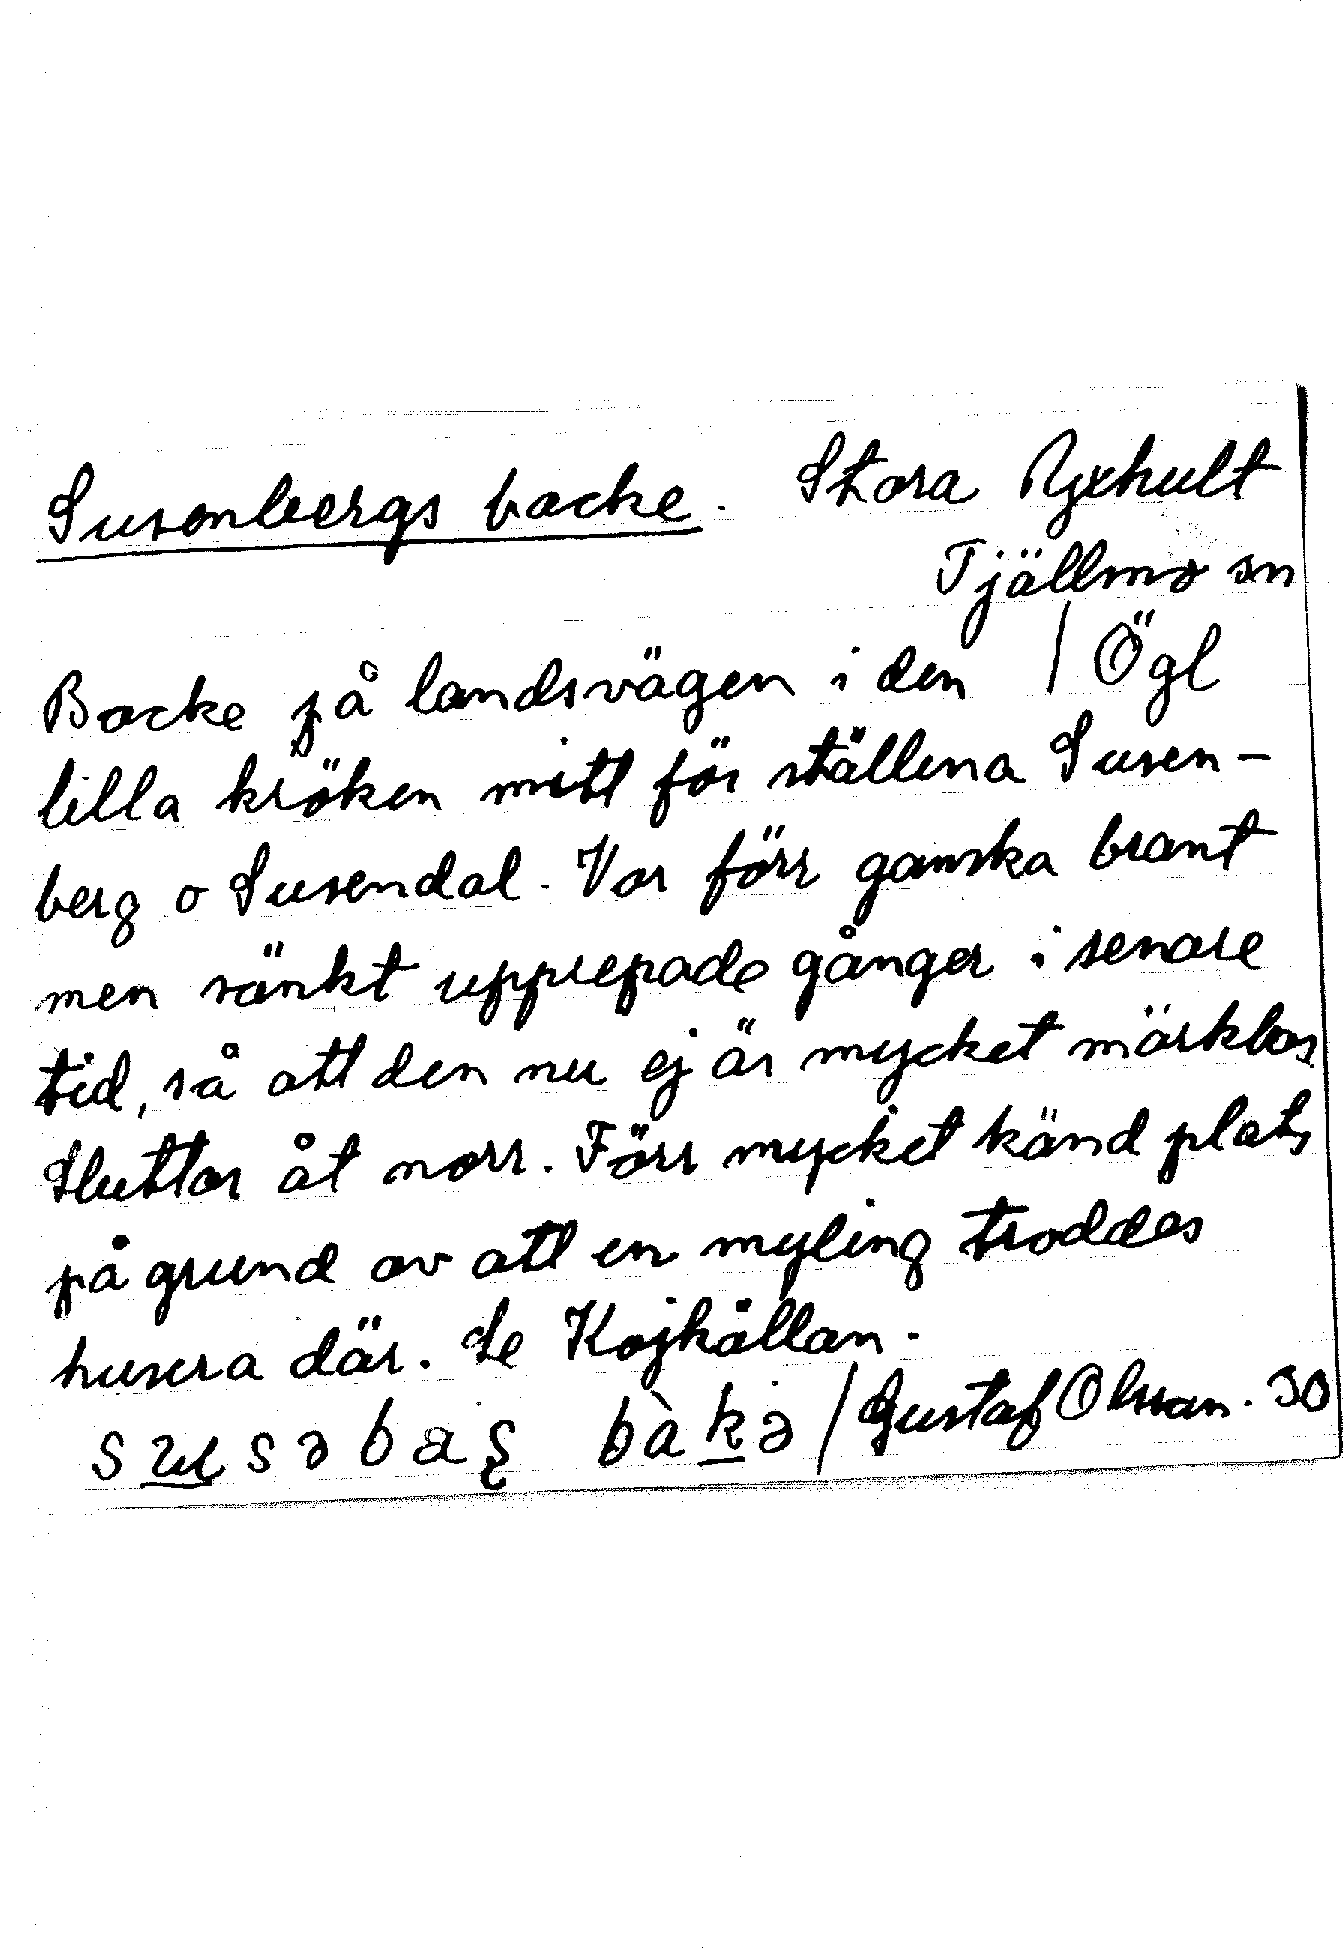 Susenbergs backe. Stora Yxhult
Tjällmo sn
Backe på landsvägen i den / Ögl
lilla kröken mitt för ställena Susen-
berg o Susendal. Var förr ganska brant
men sänkt upprepade gånger i senare
tid, så att den nu ej är mycket märkbar
Sluttar åt norr. Förr mycket känd plats
på grund av att en myling troddes
husera där. Se Kojkällan.
bàkə / Gustaf Olsson. 30